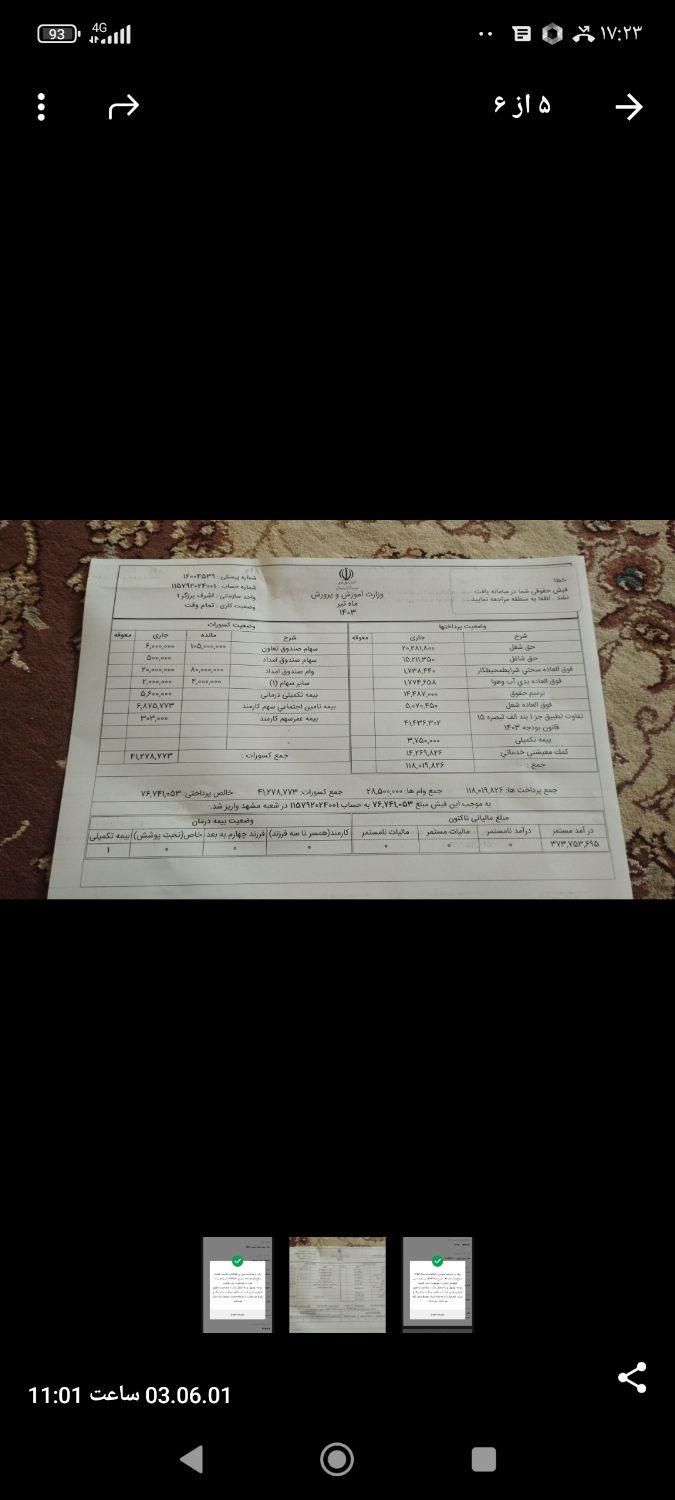 93 4G ۱۷:۲۳
۵ از ۶
خطا
فیش حقوقی شما در سامانه یافت
نشد . لطفا به منطقه مراجعه نمایید...
وزارت آموزش و پرورش
ماه تیر
۱۴۰۳
شماره پرسنلی : ۱۶۰۰۴۵۳۹
شماره حساب : ۱۱۵۷۹۲۰۲۴۰۰۱
واحد سازمانی : اشرف برزگر ۱
وضعیت کاری : تمام وقت
وضعیت پرداختها
شرح جاری معوقه
حق شغل ۲۰,۲۸۱,۸۰۰
حق شاغل ۱۵,۲۱۱,۳۵۰
فوق العاده سختي شرایطمحیطکار ۱,۷۳۸,۴۴۰
فوق العاده بدي آب وهوا ۱,۷۷۴,۶۵۸
ترمیم حقوق ۱۴,۴۸۷,۰۰۰
فوق العاده شغل ۵,۰۷۰,۴۵۰
تفاوت تطبیق جز ۱ بند الف تبصره ۱۵
قانون بودجه ۱۴۰۳ ۴۱,۴۳۶,۳۰۲
بیمه تکمیلی ۳,۷۵۰,۰۰۰
کمك معیشتي خدماتي ۱۴,۲۶۹,۸۲۶
جمع : ۱۱۸,۰۱۹,۸۲۶
وضعیت کسورات
شرح مانده جاری معوقه
سهام صندوق تعاون ۱۰۵,۰۰۰,۰۰۰ ۶,۰۰۰,۰۰۰
سهام صندوق امداد ۵۰۰,۰۰۰
وام صندوق امداد ۸۰,۰۰۰,۰۰۰ ۲۰,۰۰۰,۰۰۰
سایر سهام (۱) ۴,۰۰۰,۰۰۰ ۲,۰۰۰,۰۰۰
بیمه تکمیلی درمانی ۵,۶۰۰,۰۰۰
بیمه تامین اجتماعي سهم کارمند ۶,۸۷۵,۷۷۳
بیمه عمرسهم کارمند ۳۰۳,۰۰۰
جمع کسورات : ۴۱,۲۷۸,۷۷۳
جمع پرداخت ها: ۱۱۸,۰۱۹,۸۲۶ جمع وام ها: ۲۸,۵۰۰,۰۰۰ جمع کسورات: ۴۱,۲۷۸,۷۷۳ خالص پرداختی: ۷۶,۷۴۱,۰۵۳
به موجب این فیش مبلغ ۷۶,۷۴۱,۰۵۳ به حساب ۱۱۵۷۹۲۰۲۴۰۰۱ در شعبه مشهد واریز شد.
مبلغ مالیاتی تاکنون
در آمد مستمر درآمد نامستمر مالیات مستمر مالیات نامستمر
۳۷۳,۷۵۳,۶۹۵ ۰ ۰ ۰
وضعیت بیمه درمان
کارمند(همسر تا سه فرزند) فرزند چهارم به بعد خاص(تحت پوشش) بیمه تکمیلی
۰ ۰ ۰ ۱
03.06.01 ساعت 11:01